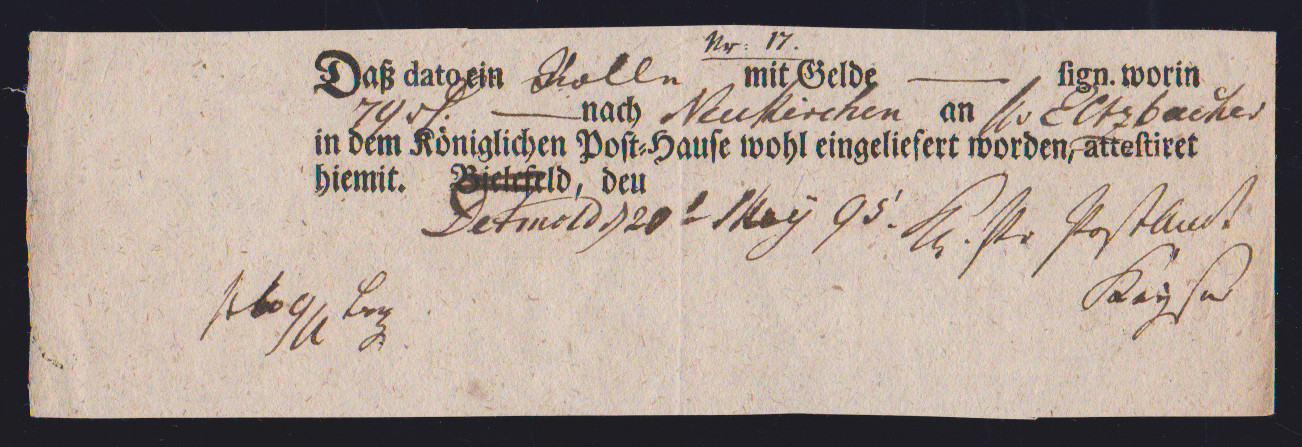 Nr: 17.
Daß dato ein Rolle mit Gelde — sign. worin
795 — nach Neukirchen an Eltzbacher
in dem Königlichen Post-Hause wohl eingeliefert worden, attestiret
hiemit. Bielefeld, den
Detmold 20t May 95. Pr Postamt
Kayser